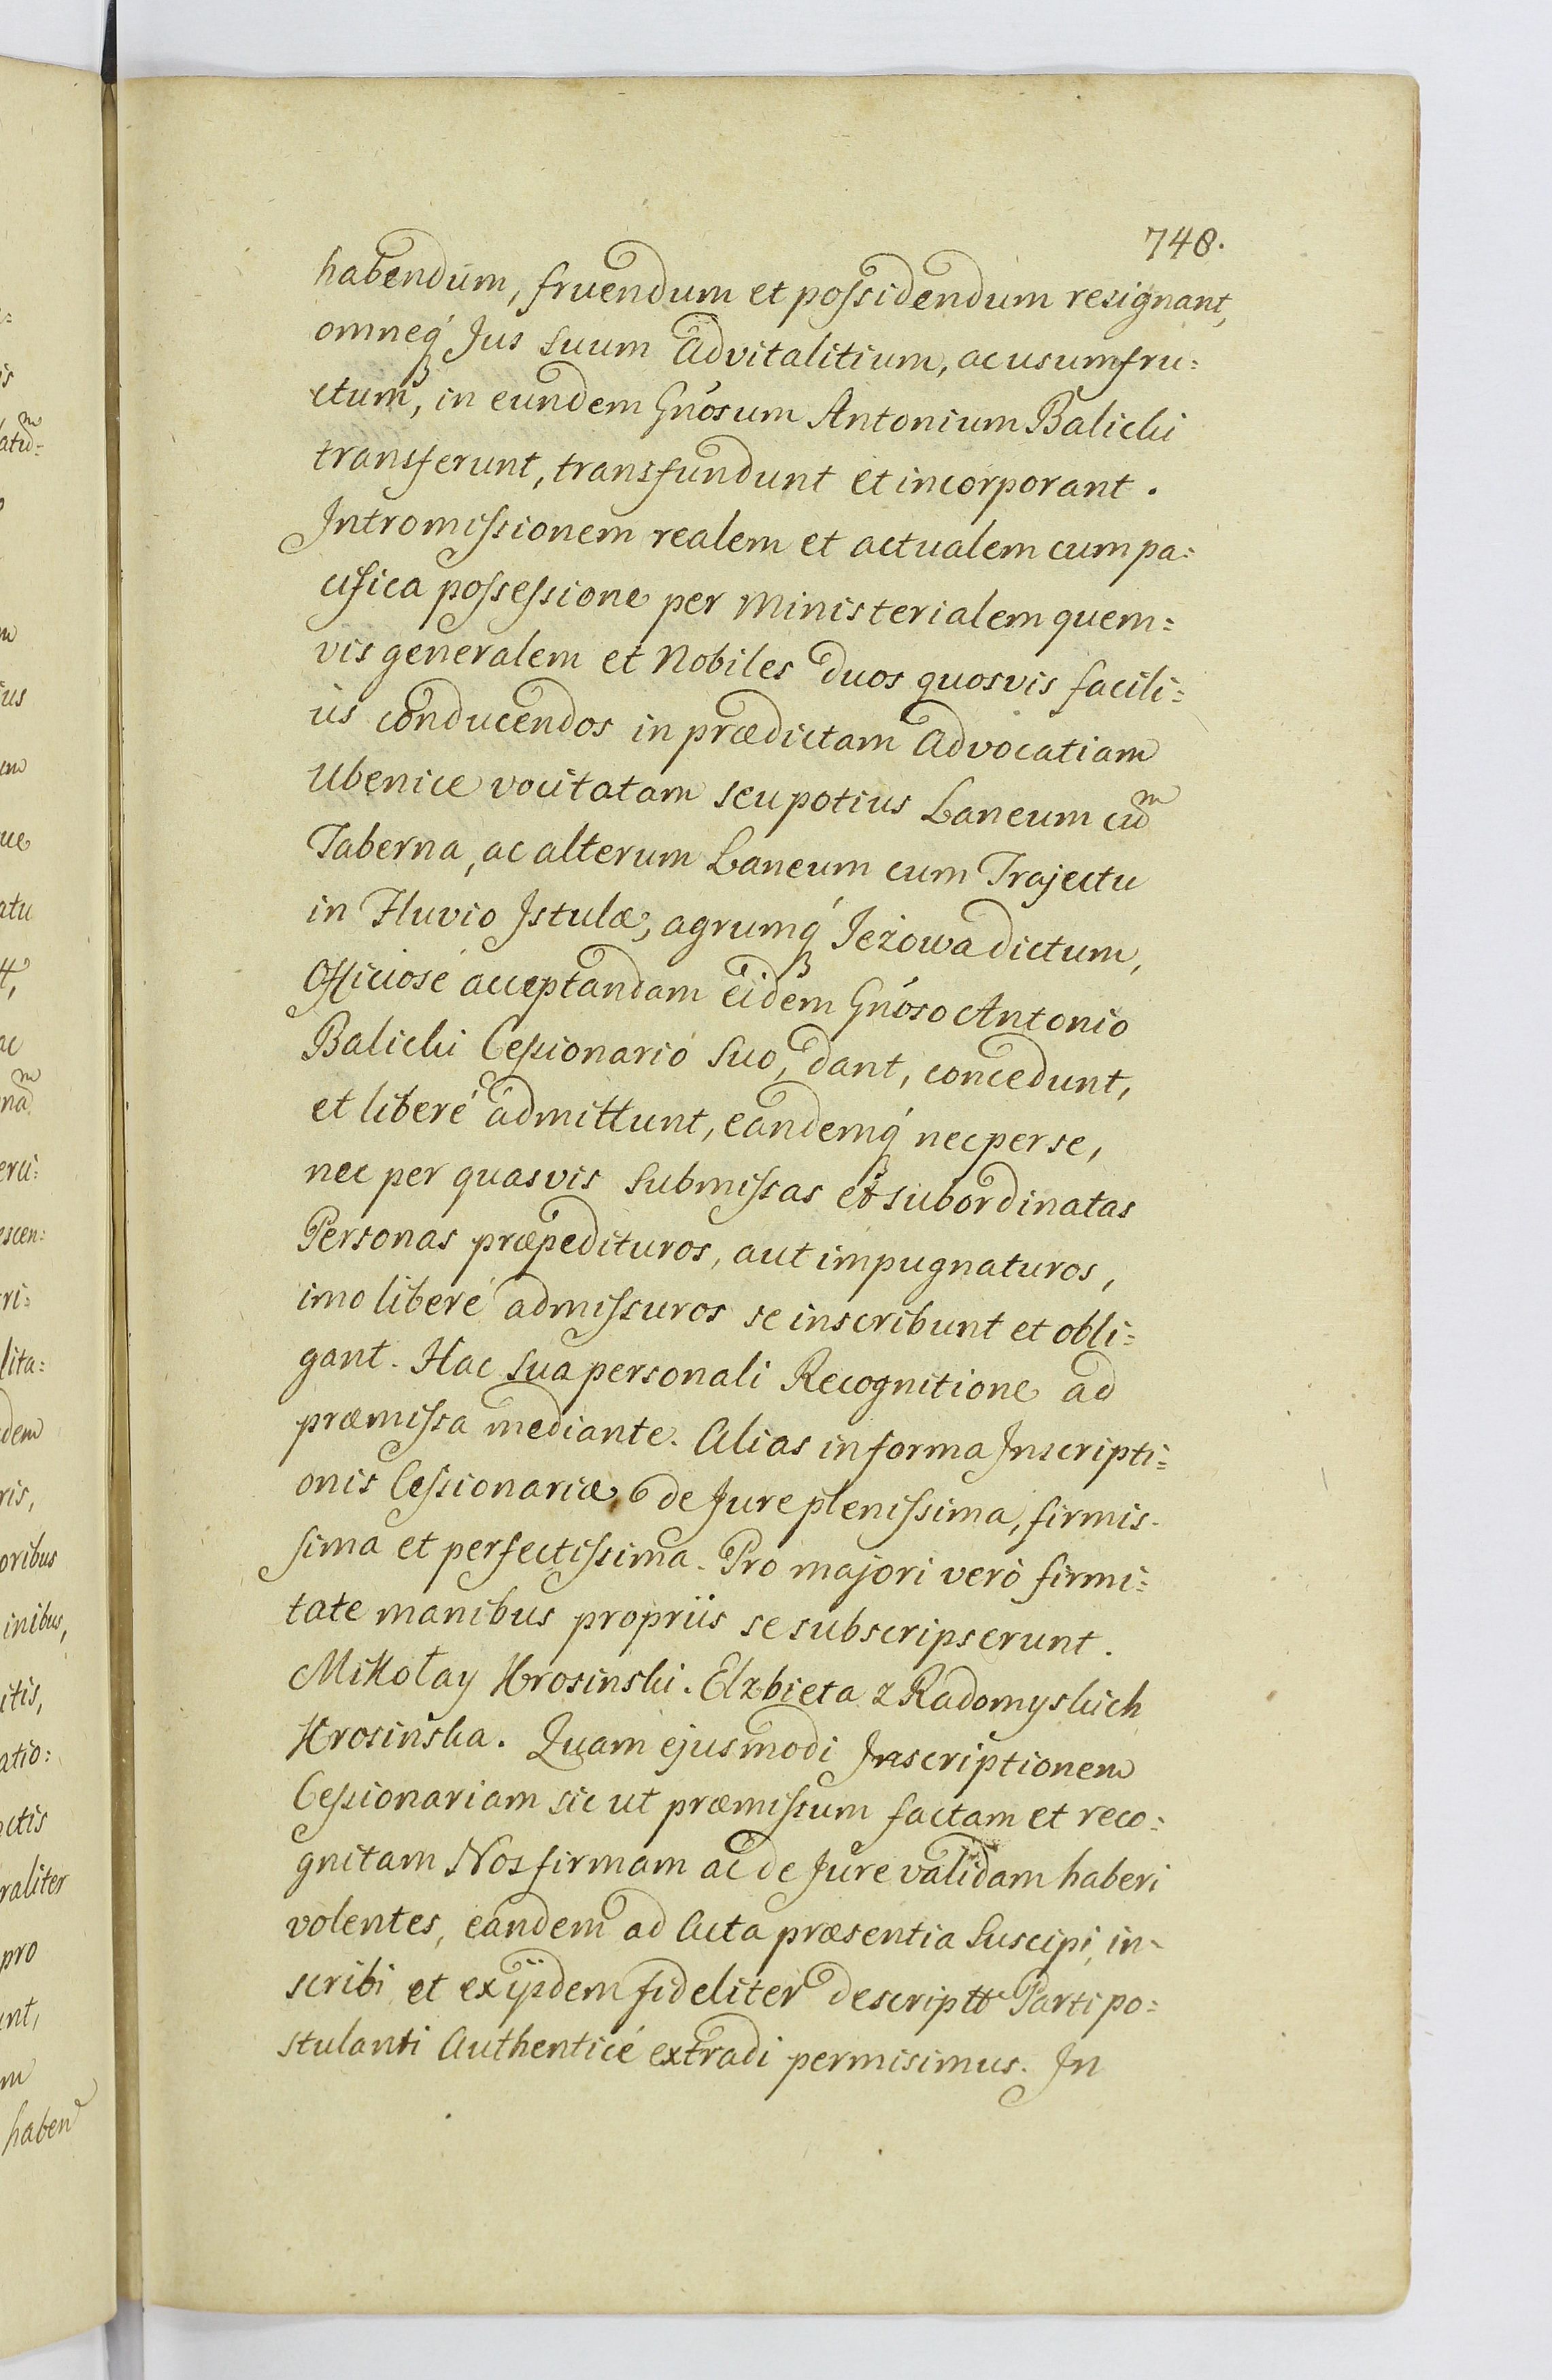 748.
habendum, fruendum et possidendum resignant,
omneq́ Jus suum Advitalitium, ac usumfru:
ctum, in eundem Gnósum Antonium Balicki
transferunt, transfundunt et incorporant.
Intromissionem realem et actualem cum pa:
cifica possessione per Ministerialem quem:
vis generalem et Nobiles duos quosvis facili:
ùs conducendos in prædictam Advocatiam
Ubenice vocitatam seu potius Laneum cum
Taberna, ac alterum Laneum cum Trajectu
in Fluvio Istulæ, agrumq́ Jeżowa dictum,
Officiosé acceptandam eidem Gnóso Antonio
Balicki Cessionario suo, dant, concedunt,
et liberé admittunt, eandemq́ nec per se,
nec per quasvis submissas et subordinatas
Personas præpedituros, aut impugnaturos,
imo liberé admissuros se inscribunt et obli:
gant. Hac sua personali Recognitione ad
præmissa mediante. Alias in forma Inscripti:
onis Cessionariæ de Jure plenissima, firmis-
sima et perfectissima. Pro majori veró firmi:
tate manibus propriis se subscripserunt.
Mikołay Krosinski. Elzbieta z Radomyskich
Krosińska. Quam ejusmodi Inscriptionem
Cessionariam sic ut præmissum factam et reco:
gnitam Nos firmam ac de Jure validam haberi
volentes, eandem ad Acta præsentia suscipi, in-
scribi et ex ijsdem fideliter descriptt Parti po:
stulanti Authenticé extradi permisimus. In